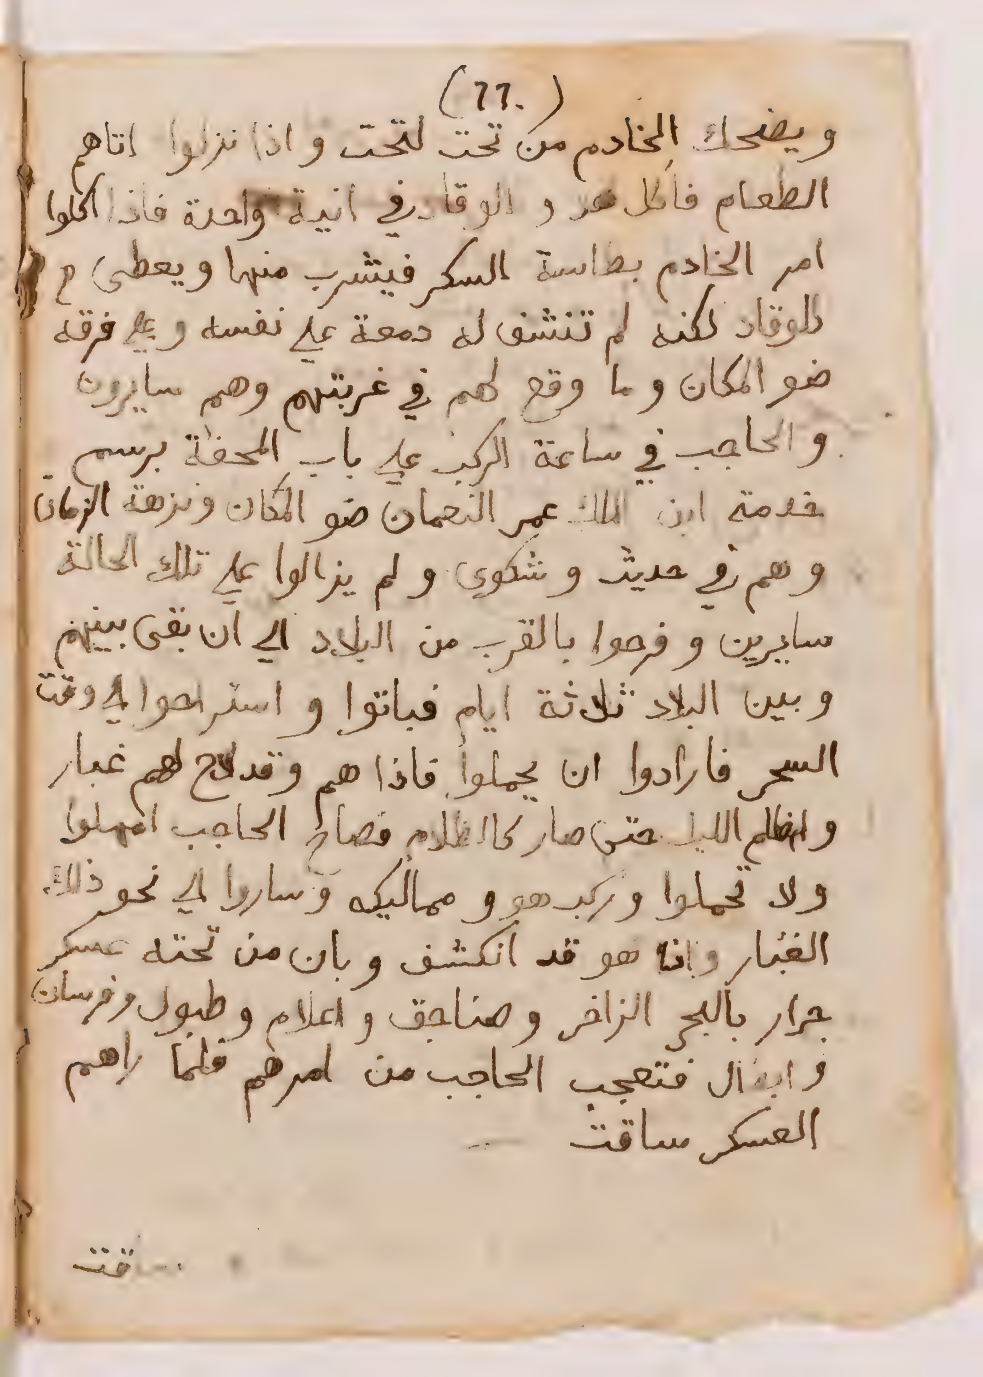 (77.)
ويضحك الخادم من تحت لتحت و اذا نزلوا اتاهم
الطعام فاكل هو و الوقاد في انية واحدة فاذا اكلوا
امر الخادم بطاسة السكر فيشرب منها و يعطى
للوقاد لكنه لم تنشف له دمعة علي نفسه و علي فرقه
ضو المكان و ما وقع لهم في غربتهم وهم سايرون
و الحاجب في ساعة الركب علي باب المحفة برسم
خدمة ابن الملك عمر النعمان ضو المكان و نزهة الزمان
و هم في حديث و شكوى و لم يزالوا علي تلك الحالة
سايرين و فرحوا بالقرب من البلاد الي ان بقى بينهم
و بين البلاد ثلاثة ايام فباتوا و استراحوا الي وقت
السحر فارادوا ان يحملوا فاذا هم و قد لاح لهم غبار
و اظلم الليل حتى صار كالظلام فصاح الحاجب امهلوا
ولا تحملوا و ركب هو و مماليكه و ساروا الي نحو ذلك
الغبار و اذا هو قد انكشف و بان من تحته عسكر
جرار بالبحر الزاخر و صناجق و اعلام و طبول و فرسان
و ابطال فتعجب الحاجب من امرهم فلما راهم
العسكر ساقت
ساقت